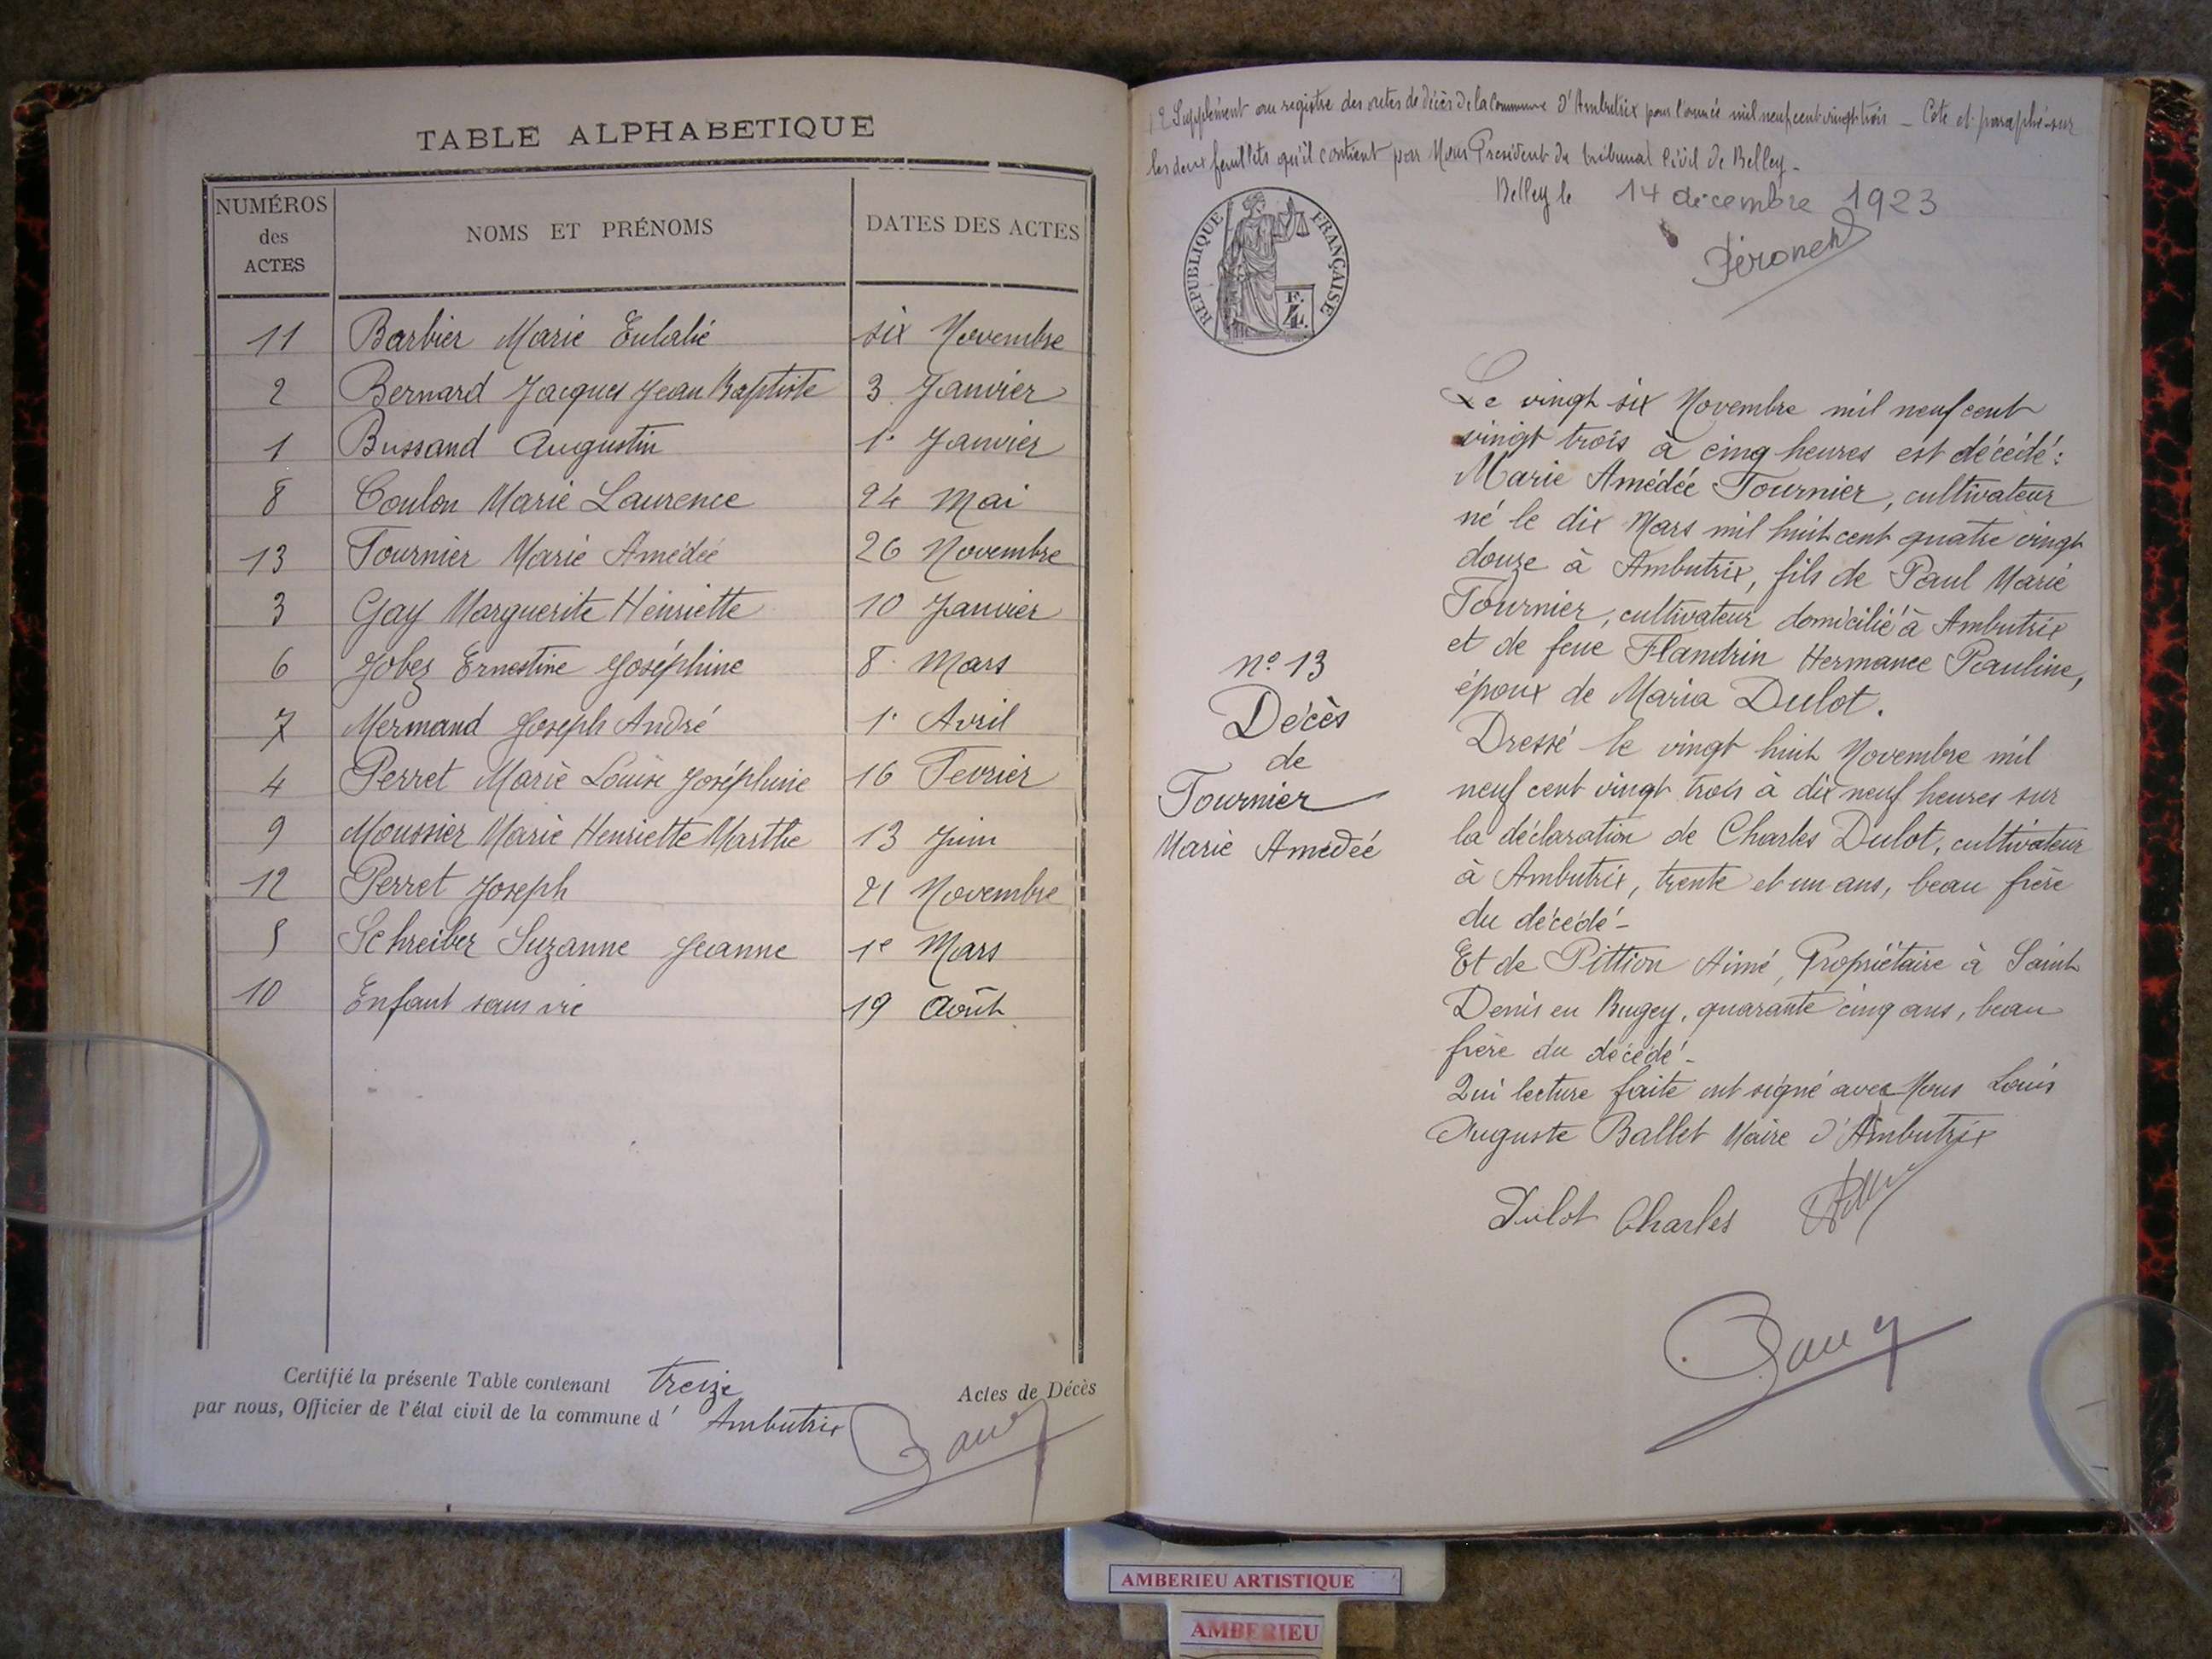 TABLE ALPHABETIQUE
NUMÉROS des ACTES NOMS ET PRÉNOMS DATES DES ACTES
11 Barbier Marie Eulalie six Novembre
2 Bernard Jacques Jean Baptiste 3 Janvier
1 Bussand Augustin 1. Janvier
8 Coulon Marie Laurence 24 Mai
13 Fournier Marie Amédée 26 Novembre
3 Gay Marguerite Henriette 10 Janvier
6 Jobez Ernestine Joséphine 8. Mars
7 Mermand Joseph André 1. Avril
4 Perret Marie Louise Joséphine 16 Fevrier
9 Moussier Marie Henriette Marthe 13 Juin
12 Perret Joseph 21 Novembre
5 Schreiber Suzanne Jeanne 1e Mars
10 Enfant sans vie 19 Août
Certifié la présente Table contenant treize Actes de Décès
par nous, Officier de l'état civil de la commune d' Ambutrix
Supplément au registre des actes de décès de la Commune d'Ambutrix pour l'année mil neuf cent vingt trois _ Coté et paraphé sur
les deux feuillets qu'il contient par Nous Président du tribunal Civil de Belley_
Belley le 14 décembre 1923
RÉPUBLIQUE FRANÇAISE
Le vingt six Novembre mil neuf cent
vingt trois à cinq heures est décédé :
Marie Amédée Fournier, cultivateur
né le dix Mars mil huit cent quatre vingt
douze à Ambutrix, fils de Paul Marie
Fournier, cultivateur domicilié à Ambutrix
et de feue Flandrin Hermance Pauline,
époux de Maria Dulot.
n° 13
Décès
de
Fournier
Marie Amédée
Dressé le vingt huit Novembre mil
neuf cent vingt trois à dix neuf heures sur
la déclaration de Charles Dulot, cultivateur
à Ambutrix, trente et un ans, beau frère
du décédé_
Et de Pittion Aimé, Propriétaire à Saint
Denis en Bugey, quarante cinq ans, beau
frère du décédé_
Qui lecture faite ont signé avec Nous Louis
Auguste Ballet Maire d'Ambutrix
Dulot Charles
AMBERIEU ARTISTIQUE
AMBERIEU